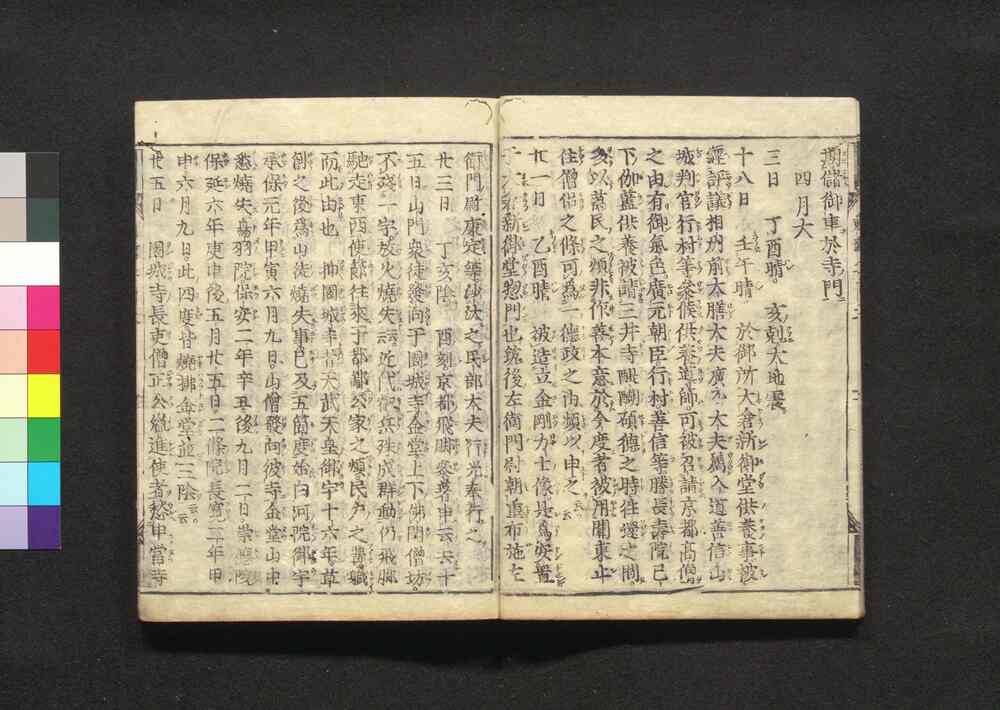 期儲御車於寺門
四月大
三日 丁酉晴。亥剋大地震
十八日 壬午晴 於御所大倉新御堂供養事被
經評議相州前大膳大夫廣元大夫屬入道善信山
城判官行村等參候供養導師可被召請京都高僧
之由有御氣色廣元朝臣行村善信等勝長壽院已
下伽藍供養被請三井寺醍醐碩德之時往還之間
多以萬民之煩非作善本意於今度者被用關東止
住僧侶之條可爲一德政之由頻以申之 云
廿一日 乙酉晴 被造立金剛力士像是爲安置
新御堂惣門也 後左衛門尉朝重布施左
衛門尉康定等沙汰之民部大夫行光奉行之
廿三日 丁亥陰 酉刻京都飛脚參著申云去十
五日山門衆徒發向于園城寺金堂上下佛閣僧坊
不殘一宇放火燒失云近代 兵殊成群動仍飛脚
馳走東西使節往來于都鄙公家之煩民戶之 職
而此由也 抑園城寺者天武天皇御宇十六年草
創之後爲山徒燒失事已及五箇度始白河院御宇
承保元年甲寅六月九日。山僧發向彼寺金堂山中
悉燒失鳥羽院保安二年辛丑後九月二日崇德院
保延六年庚申後五月廿五日。二條院長寬二年甲
申六月九日。此四度皆燒拂金堂並三陰 云。
廿五日 園城寺長吏僧正公胤進使者愁申當寺